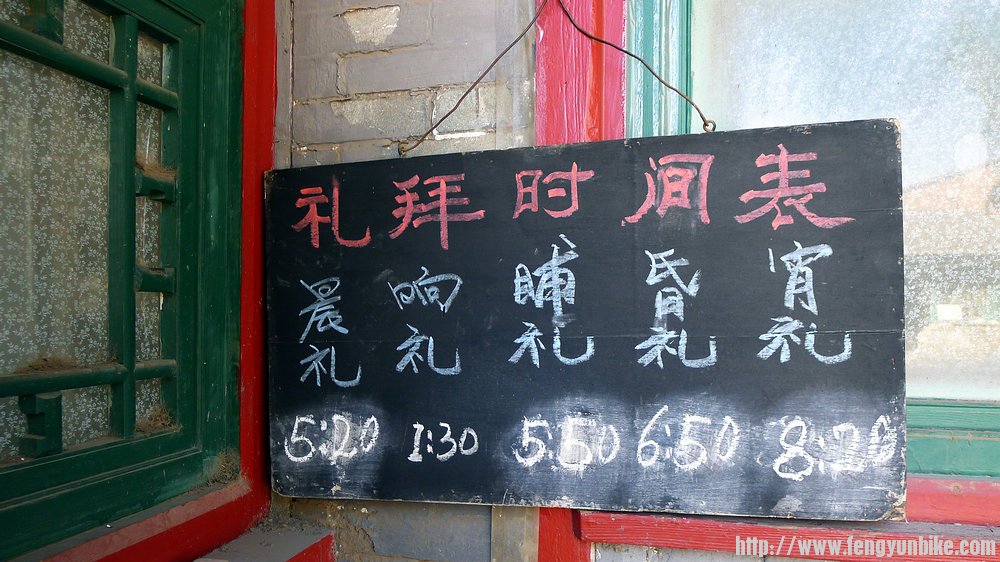 礼拜时间表
晨礼 晌礼 晡礼 昏礼 宵礼
5:20 1:30 5:50 6:50 8:20
http://www.fengyunbike.com